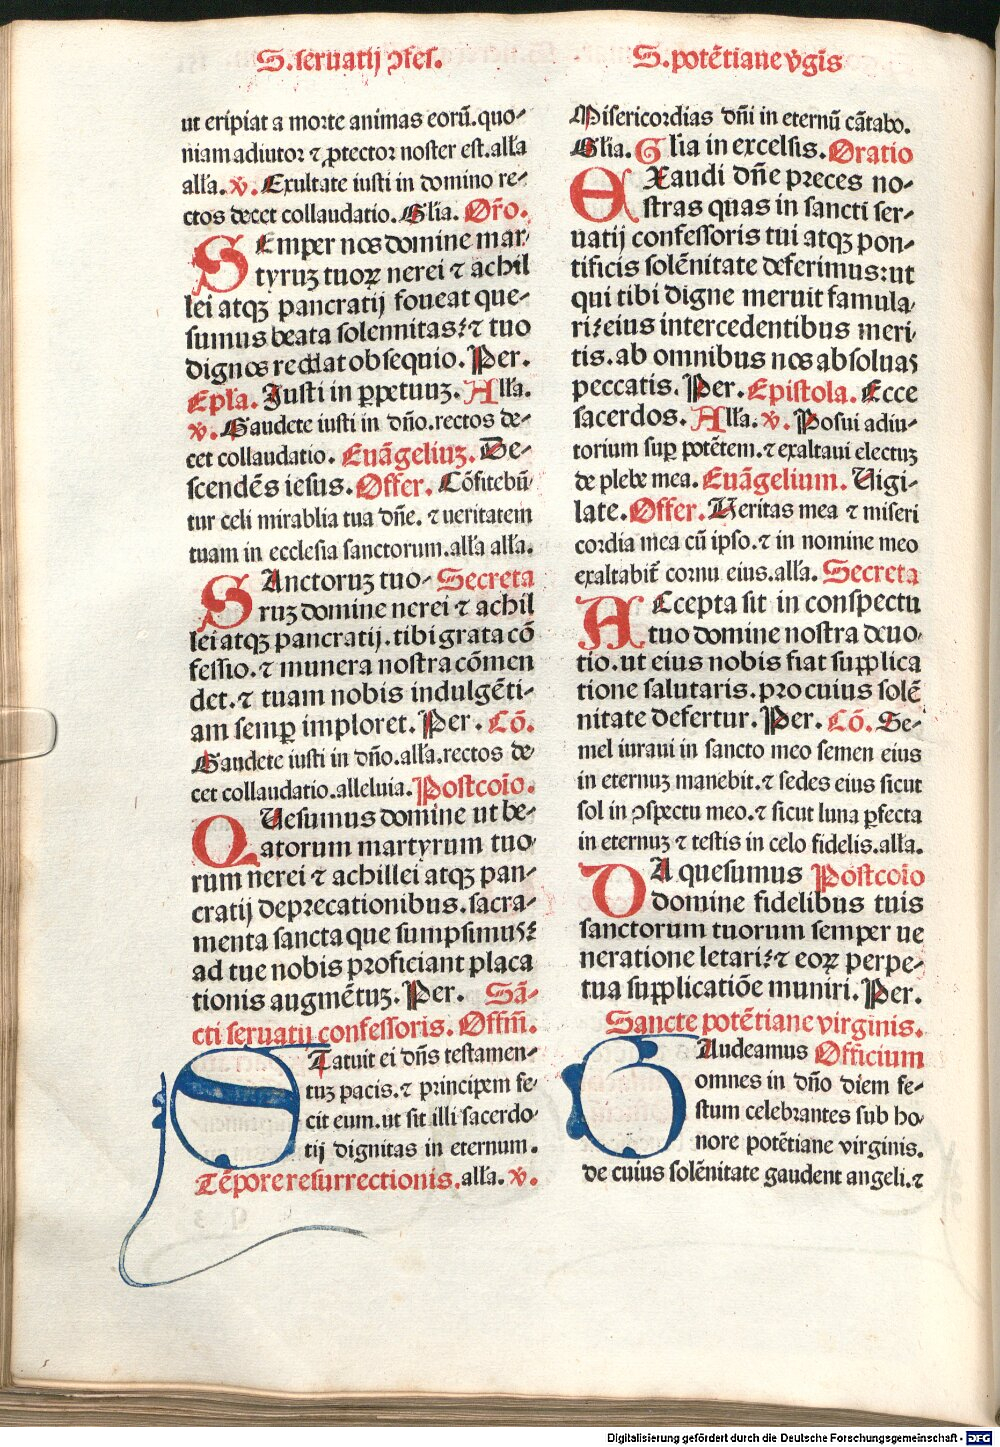 S. seruatij ↄfes.
S. potẽtiane v̾gĩs
ut eripiat a morte animas eorũ. quo-
niam adiutor ⁊ ꝓtector noster est. alľa
alľa. ℣. Exultate iusti in domino re-
ctos decet collaudatio. Glĩa. Oŕo.
SEmper nos domine mar
tyruꝫ tuoꝝ nerei ⁊ achil
lei atqꝫ pancratij foueat que-
sumus beata solennitas: ⁊ tuo
dignos reddat obsequio. Per.
Epľa. Justi in ꝑpetuuꝫ. Alľa.
℣. Gaudete iusti in dño. rectos de-
cet collaudatio. Euãgeliuꝫ. De-
scendẽs iesus. Offer. Cõfitebũ
tur celi mirablia tua dñe. ⁊ ueritatem
tuam in ecclesia sanctorum. alľa alľa.
SAnctoruꝫ tuo- Secreta
ruꝫ domine nerei ⁊ achil
lei atqꝫ pancratij. tibi grata cõ
fessio. ⁊ munera nostra cõmen
det. ⁊ tuam nobis indulgẽti-
am semꝑ imploret. Per. Cõ.
Gaudete iusti in dño. alľa. rectos de
cet collaudatio. alleluia. Postcoĩo.
QUesumus domine ut be-
atorum martyrum tuo
rum nerei ⁊ achillei atqꝫ pan-
cratij deprecationibus. sacra-
menta sancta que sumpsimus:
ad tue nobis proficiant placa
tionis augmẽtuꝫ. Per. Sã-
cti seruatij confessoris. Offiñ.
STatuit ei dñs testamen-
tuꝫ pacis. ⁊ principem fe-
cit eum. ut sit illi sacerdo-
tij dignitas in eternum.
Tẽpore resurrectionis. alľa. ℣.
Misericordias dñi in eternũ cãtabo.
Glĩa. Glia in excelsis. Oratio
EXaudi dñe preces no-
stras quas in sancti ser-
uatij confessoris tui atqꝫ pon-
tificis solẽnitate deferimus: ut
qui tibi digne meruit famula-
ri: eius intercedentibus meri
tis. ab omnibus nos absoluas
peccatis. Per. Epistola. Ecce
sacerdos. Alľa. ℣. Posui adiu-
torium suꝑ potẽtem. ⁊ exaltaui electuꝫ
de plebe mea. Euãgelium. Uigi-
late. Offer. Ueritas mea ⁊ miseri
cordia mea cũ ipso. ⁊ in nomine meo
exaltabit̃ cornu eius. alľa. Secreta
ACcepta sit in conspectu
tuo domine nostra deuo-
tio. ut eius nobis fiat supplica
tione salutaris. pro cuius solẽ
nitate defertur. Per. Cõ. Se-
mel iuraui in sancto meo semen eius
in eternuꝫ manebit. ⁊ sedes eius sicut
sol in ↄspectu meo. ⁊ sicut luna ꝑfecta
in eternuꝫ ⁊ testis in celo fidelis. alľa.
DA quesumus Postcoĩo
domine fidelibus tuis
sanctorum tuorum semper ue
neratione letari: ⁊ eoꝝ perpe-
tua supplicatiõe muniri. Per.
Sancte potẽtiane virginis.
GAudeamus Officium
omnes in dño diem fe-
stum celebrantes sub ho-
nore potẽtiane virginis.
de cuius solẽnitate gaudent angeli. ⁊
Digitalisierung gefördert durch die Deutsche Forschungsgemeinschaft - DFG